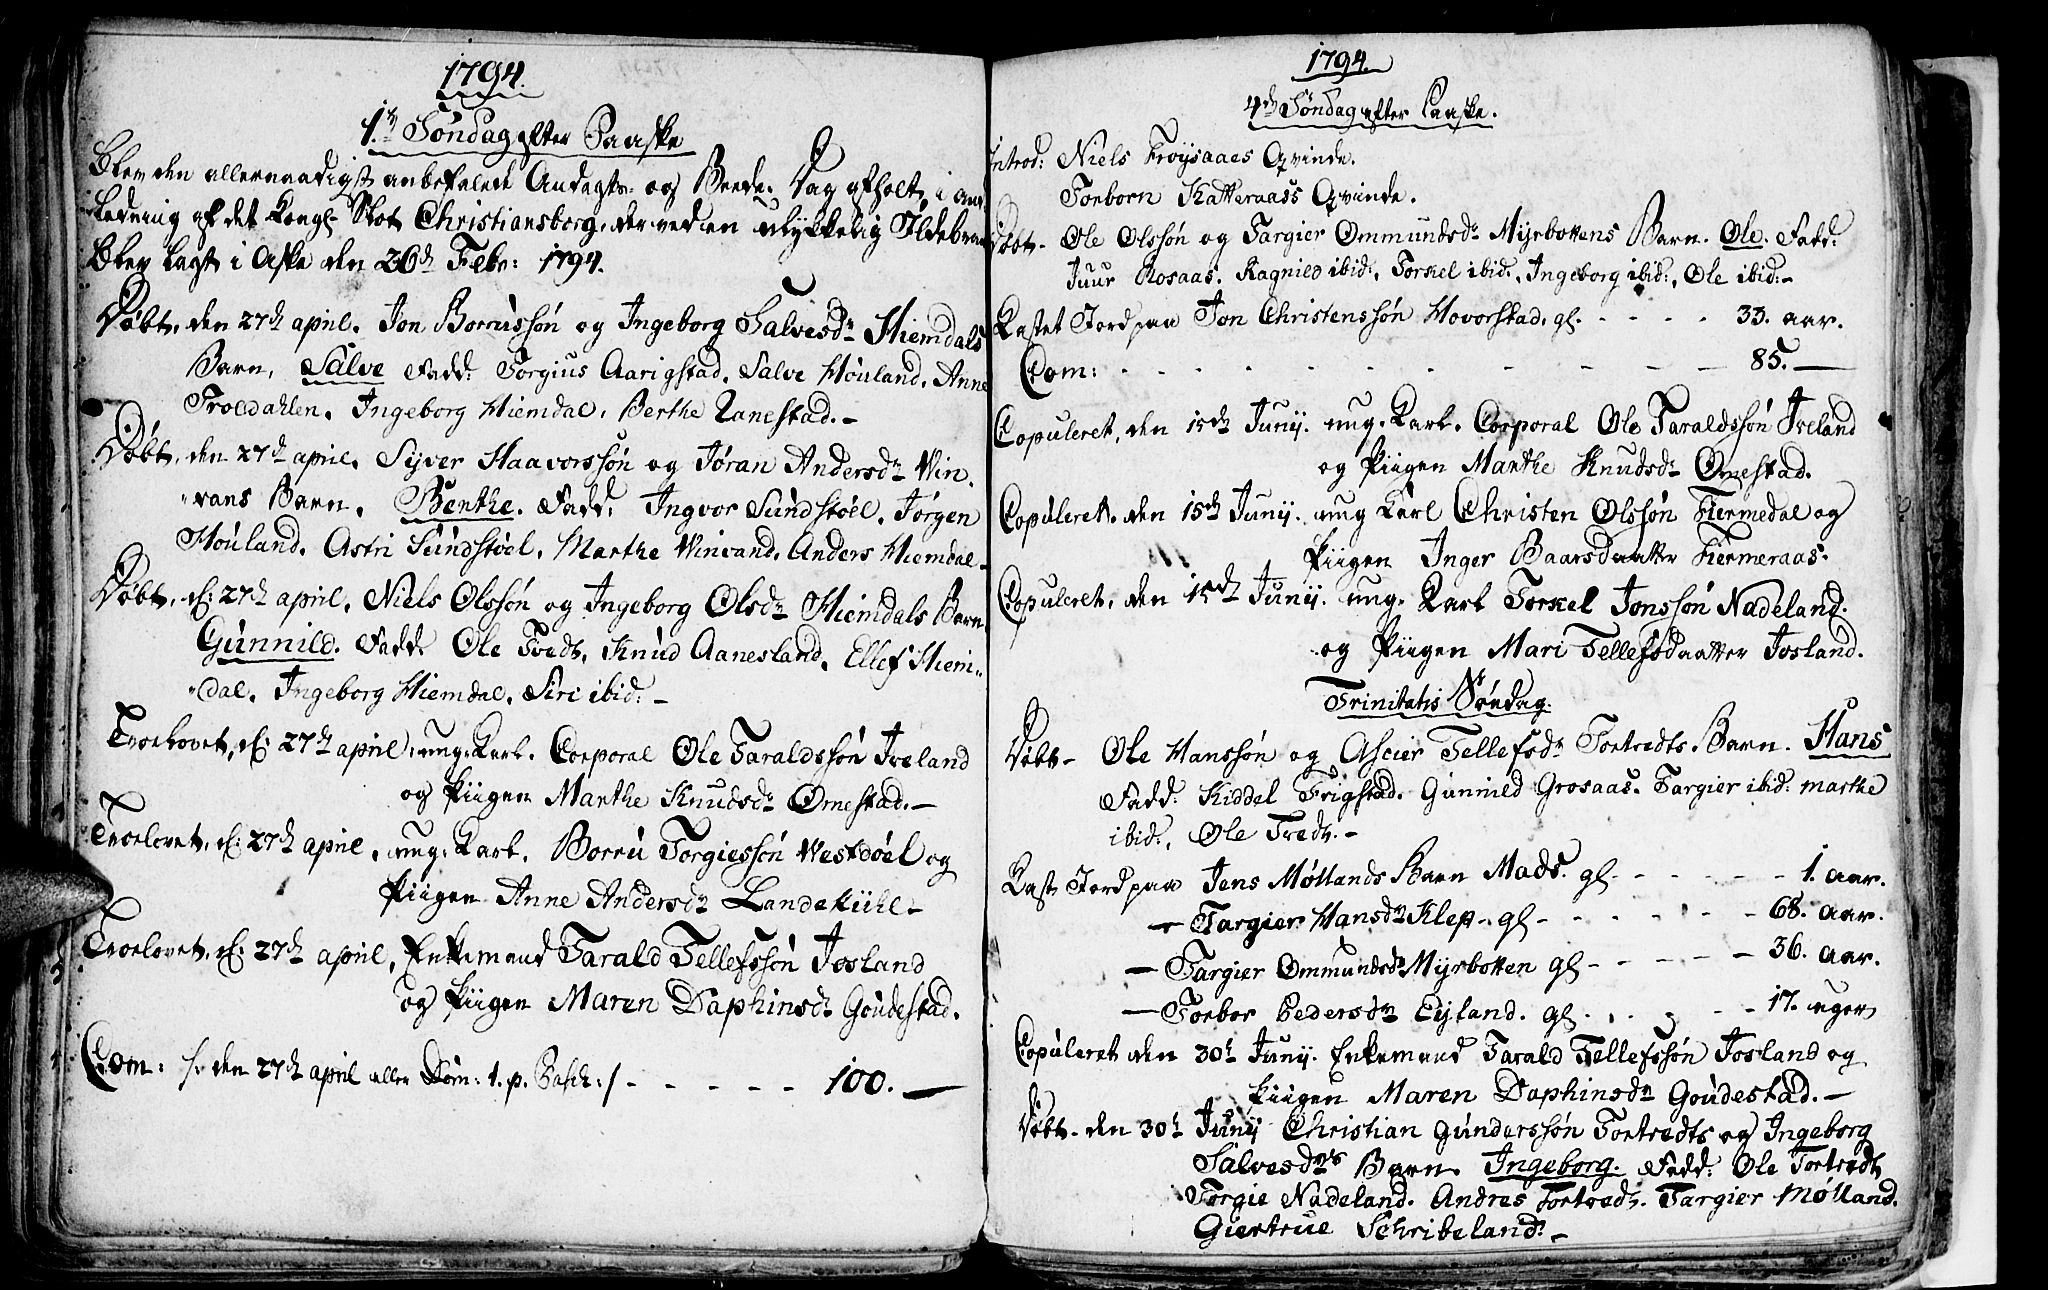 1794.
1.ste Søndag efter Paaske
Blev den allernaadigst anbefalede Andagts- og Beede- Dag afholt, i an-
ledning af det Kongl. Slot Christiansborg, der ved en ulykkelig Ildebran
blev lagt i Aske den 26de Febr: 1794.
Døbt, den 27de april. Jon Borrusson og Ingeborg Salvesdr Hiemdals
Barn, Salve Fadd: Torgius Aarigstad, Salve Høuland, Anne
Troldahlen, Ingeborg Hiemdal, Berthe Lanestad.-
Døbt, den 27de april, Syver Haavorssøn og Jøran Andersdr Win-
vans Barn, Benthe. Fadd. Ingvor Sundstøel, Jørgen
Høuland, Astri Sundstøel, Marthe Winvand, Anders Hiemdal-
Døbt, d: 27de april, Niels Olssøn og Ingeborg Olsdr Hiemdals Barn
Gunnild. Fadd: Ole Tvedt, Knud Aanesland, Ellef Hiem-
-dal, Ingeborg Hiemdal, Siri ibid:-
Troelovet, d: 27de april, ung-Karl. Corporal Ole Taraldssøn Ireland
og Piigen Marthe Knudsdr Omestad.-
Troelovet, d: 27de april, ung-Karl, Borru Torgiessøn Westdøel og
Piigen Anne Andersdr Landekiihl-
Troelovet, d: 27de april, Enkemand Tarald Tellefssøn Josland
og Piigen Maren Daphinsdr Goudestad.
Com: /: den 27de april eller Dom: 1. p. Pasch:/ - - - - - 100.-
1794.
4de Søndag efter Paaske.
Introd: Niels Frøysaaes Qvinde.
Torborn Katteraass Qvinde.
Døbt- Ole Olssøn og Targier Ommundsdr Myrbottens Barn. Ole. Fadd:
Juur Rosaas. Ragnild ibid:, Torkel ibid:, Ingeborg ibid:, Ole ibid:-
Kastet Jord paa Jon Christenssøn Hovorstad, gl. - - - - 33. aar.
Com: - - - - - - - - - 85.-
Copuleret, den 15de Junij. ung-Karl. Corporal Ole Taraldssøn Ireland
og Piigen Marthe Knudsdr Omestad.
Copuleret, den 15de Junij. ung Karl Christen Olssøn Fiermedal og
Piigen Inger Baarsdaatter Fiermeraas.
Copuleret, den 15de Junij. ung-Karl Torkel Jonssøn Nadeland.
og Piigen Mari Tellefsdaatter Josland.
Trinitatis Søndag.
Døbt- Ole Hanssøn og Ascier Tellefsdr Tortredts Barn. Hans
Fadd: Kiddel Frigstad. Gunnild Grosaas. Targier ibid: marthe
ibid:, Ole Tredt.-
Kast Jord paa Jens Møllands Barn Mads. gl- - - - - - 1. aar.
- Targier Hansdr Klep- gl- - - - - - 68. aar.
- Targier Ommundsdr Myrbotten gl- - - - - 36. aar.
- Torbor Pedersdr Eyland. gl- - - - - 17. uger
Copuleret den 30te Junij. Enkemand Tarald Tellefssøn Josland og
Piigen Maren Daphinsdr Goudestad.-
Døbt- den 30te Junij Christian Gunderssøn Tortredts og Ingeborg
Salvesdrs Barn. Ingeborg. Fadd: Ole Tortredt
Torgie Nadeland. Andres Tortredt. Targier Mølland.
Giertrue Schribeland:-